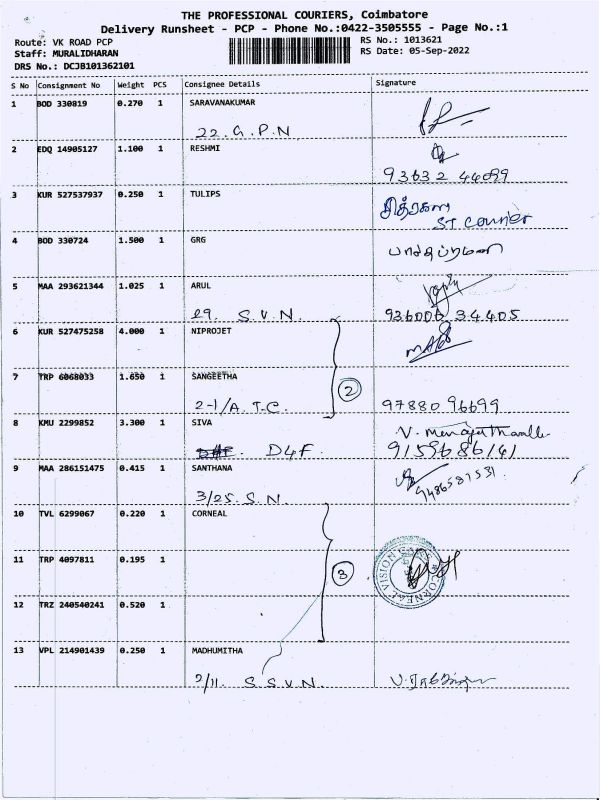 THE PROFESSIONAL COURIERS, Coimbatore
Delivery Runsheet - PCP - Phone No.:0422-3505555 - Page No.:1
Route: VK ROAD PCP
Staff: MURALIDHARAN
DRS No.: DCJB101362101
RS No.: 1013621
RS Date: 05-Sep-2022
S No Consignment No Weight PCS Consignee Details Signature
1 BOD 330819 0.270 1 SARAVANAKUMAR
22. G.P.N
2 EDQ 14905127 1.100 1 RESHMI
93632 44099
3 KUR 527537937 0.250 1 TULIPS
சித்ரகலா
ST Courier
4 BOD 330724 1.500 1 GRG
5 MAA 293621344 1.025 1 ARUL
29. S.V.N.
936006 34405
6 KUR 527475258 4.000 1 NIPROJET
7 TRP 6068033 1.650 1 SANGEETHA
2
2-1/A. T.C.
97880 96699
8 KMU 2299852 3.300 1 SIVA
D4F.
V.
9159686141
9 MAA 286151475 0.415 1 SANTHANA
3/25. S.N.
9486587531
10 TVL 6299067 0.220 1 CORNEAL
11 TRP 4097811 0.195 1
3
CORNEAL VISION
12 TRZ 240540241 0.520 1
13 VPL 214901439 0.250 1 MADHUMITHA
2/11. S.S.V.N.